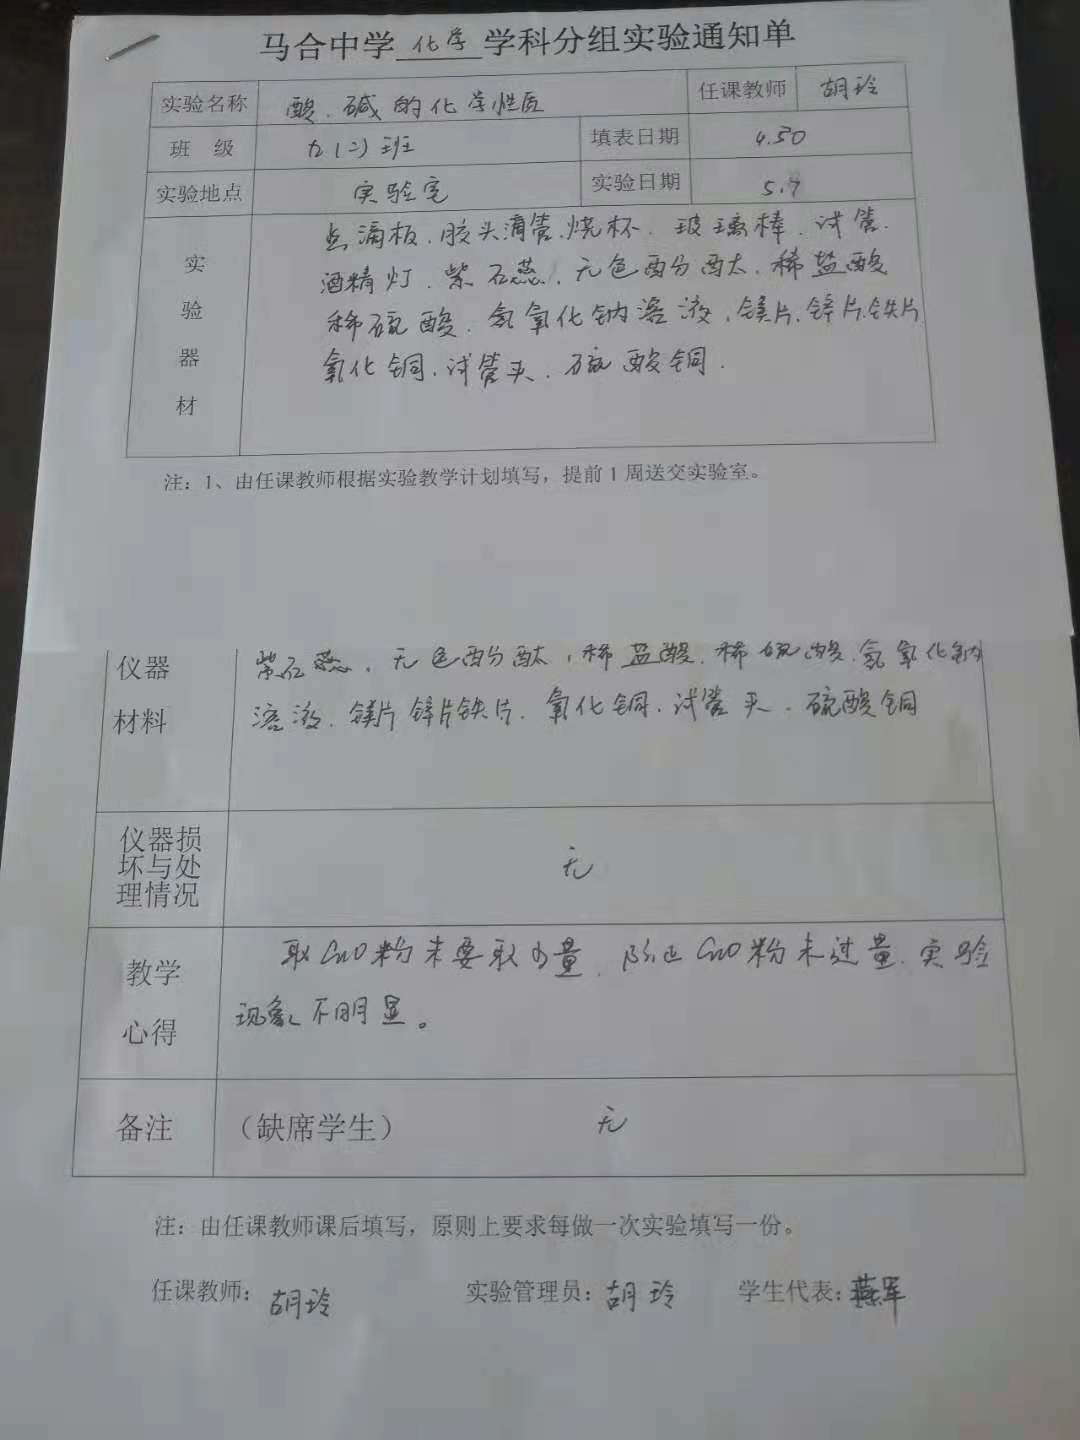 马合中学 化学 学科分组实验通知单
实验名称 酸、碱的化学性质 任课教师 胡玲
班 级 九(二)班 填表日期 4.30
实验地点 实验室 实验日期 5.7
实验器材
点滴板、胶头滴管、烧杯、玻璃棒、试管、
酒精灯、紫石蕊、无色酚酞、稀盐酸
稀硫酸、氢氧化钠溶液、镁片、锌片、铁片
氧化铜、试管夹、硫酸铜.
注：1、由任课教师根据实验教学计划填写，提前1周送交实验室。
仪器 紫石蕊、无色酚酞、稀盐酸、稀硫酸、氢氧化钠
材料 溶液、镁片锌片铁片、氧化铜、试管夹、硫酸铜
仪器损
坏与处 无
理情况
教学 取CuO粉末要取少量、防止CuO粉末过量、实验
心得 现象不明显。
备注 （缺席学生） 无
注：由任课教师课后填写，原则上要求每做一次实验填写一份。
任课教师：胡玲 实验管理员：胡玲 学生代表：